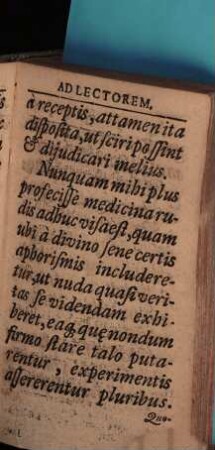 AD LECTOREM.
à receptis, attamen ita
disposita, ut sciri possint
& dijudicari melius.
Nunquam mihi plus
profecisse medicina ru-
dis adhuc visa est, quam
ubi à divino sene certis
aphorismis includere-
tur, ut nuda quasi veri-
tas se videndam exhi-
beret, eaq; quę nondum
firmo stare talo puta-
rentur, experimentis
assererentur pluribus.
Quo-